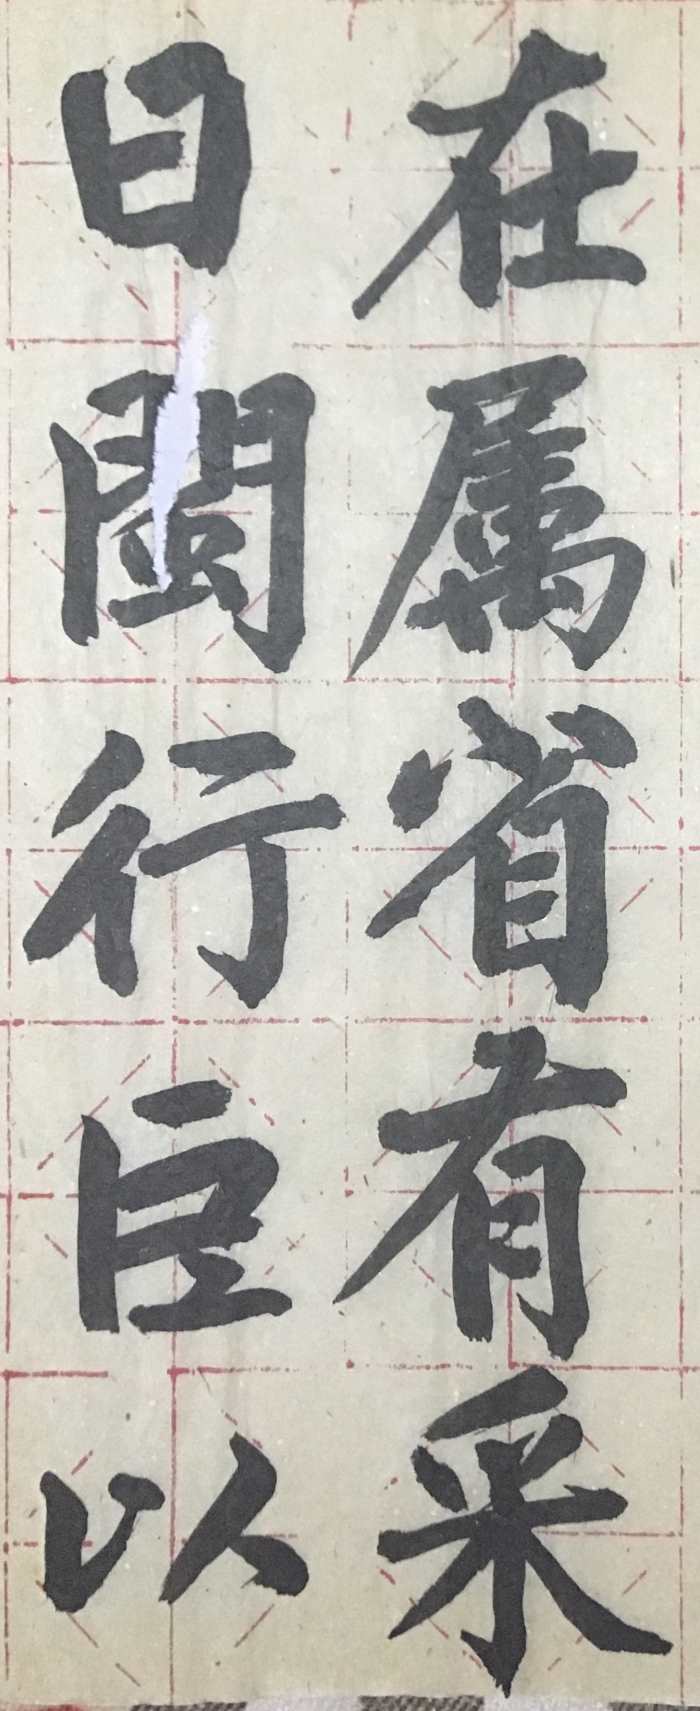 在属省有采
日閩行臣以